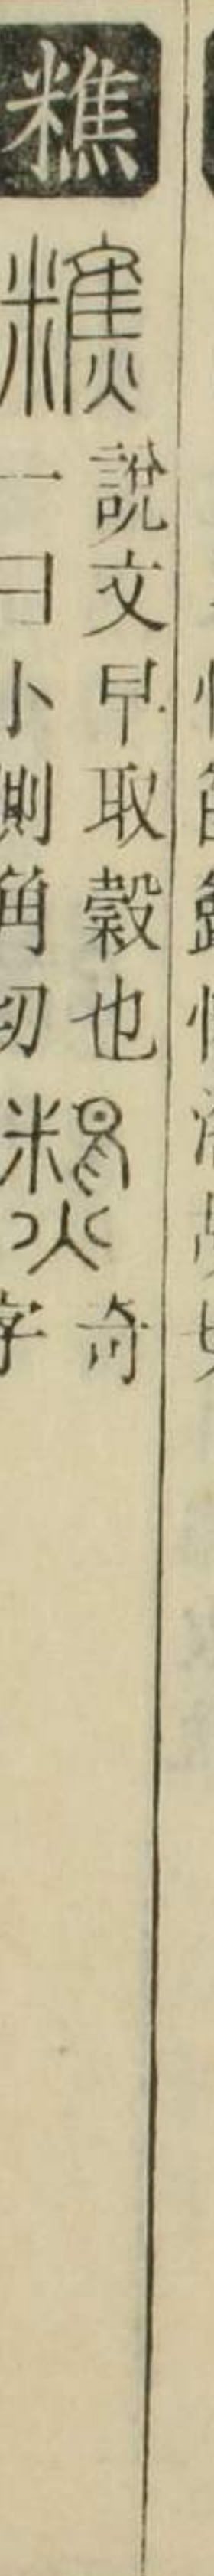 糕
說文早取穀也
一曰小側角切
奇
字